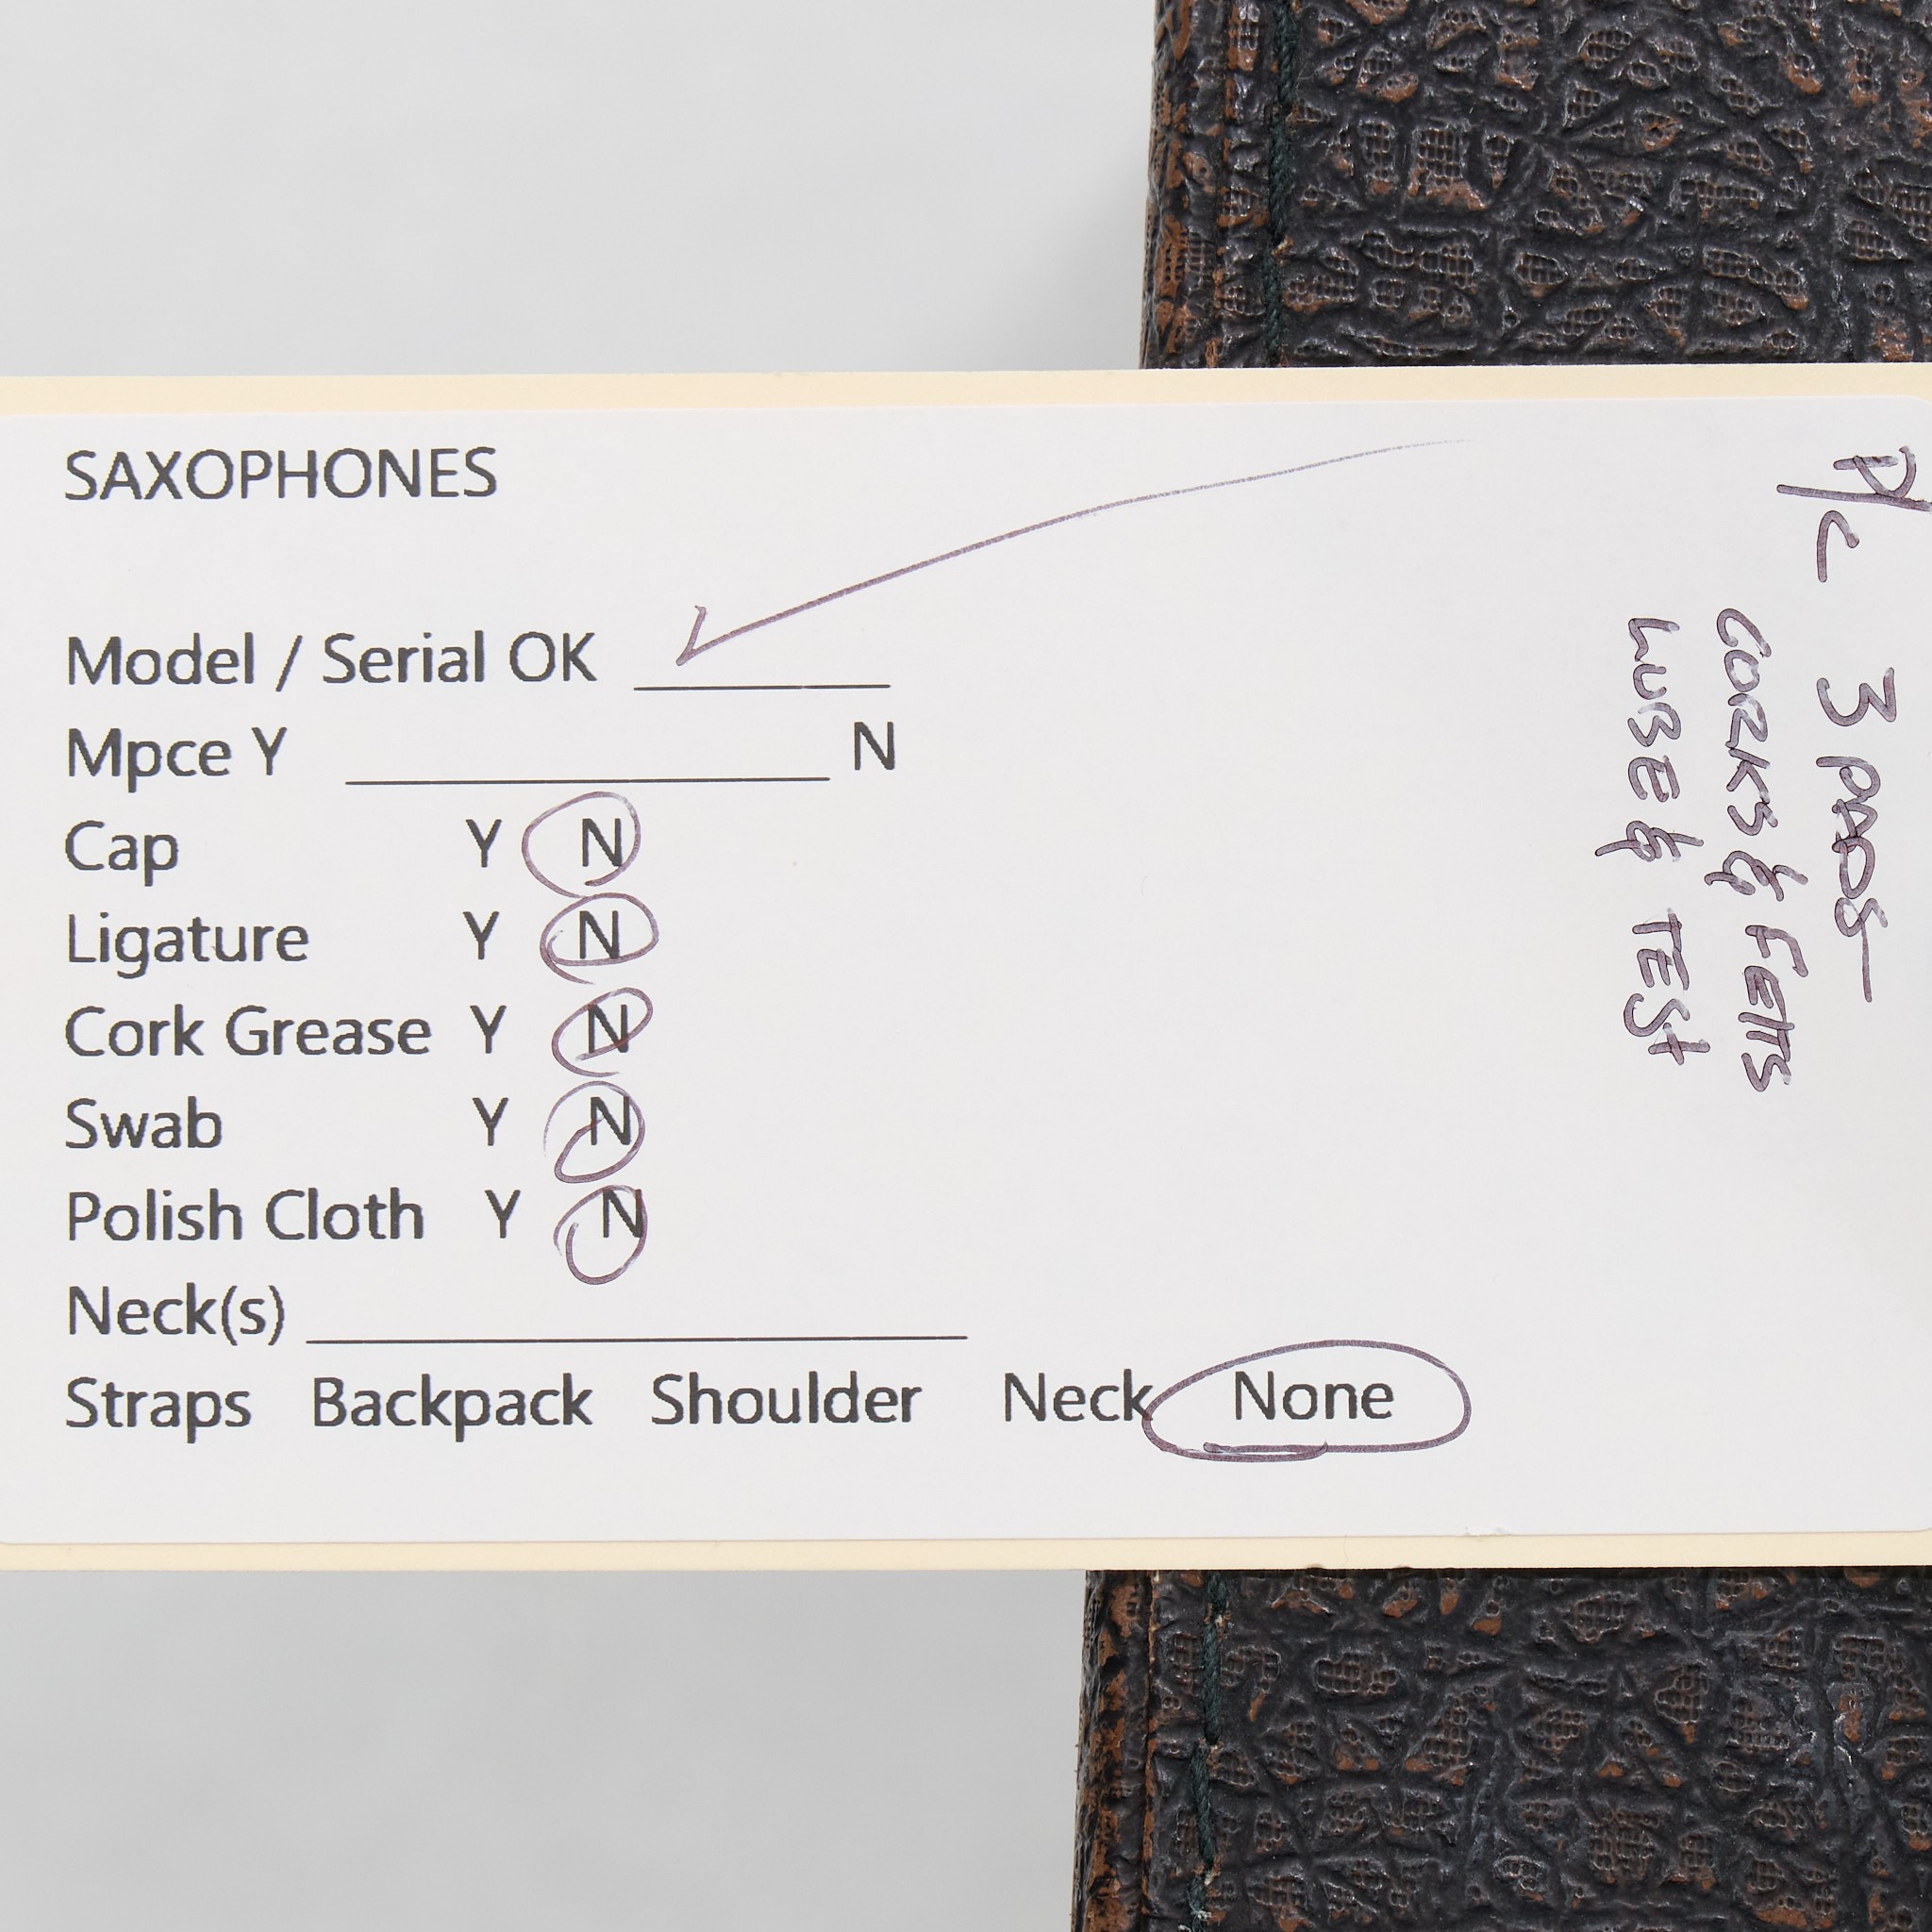 SAXOPHONES
Model / Serial OK ________
Mpce Y ________________ N
Cap Y N
Ligature Y N
Cork Grease Y N
Swab Y N
Polish Cloth Y N
Neck(s) ______________________
Straps Backpack Shoulder Neck None
P/C 3 PADS
CORKS & FELTS
LUBE & TEST